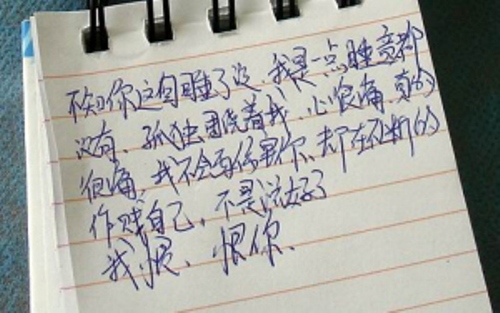 不知你这自睡了没、我是一点睡意都
没有、孤独围绕着我、心很痛、真的
很痛、我不会再伤害你、却在不断的
作贱自己、不是说好了
我恨、恨你、